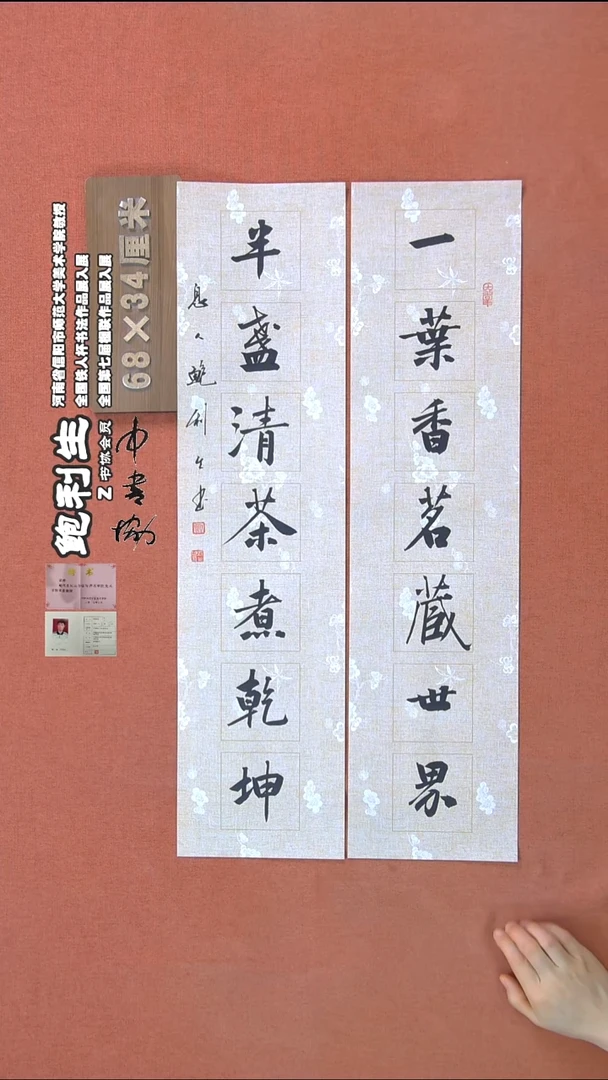 一葉香茗藏世界
半盏清茶煮乾坤
鲍利生书
68×34厘米
河南省信阳市师范大学美术学院教授
全国铁人杯书法作品展入展
全国第七届楹联作品展入展
鲍利生
Z书协会员
中书协